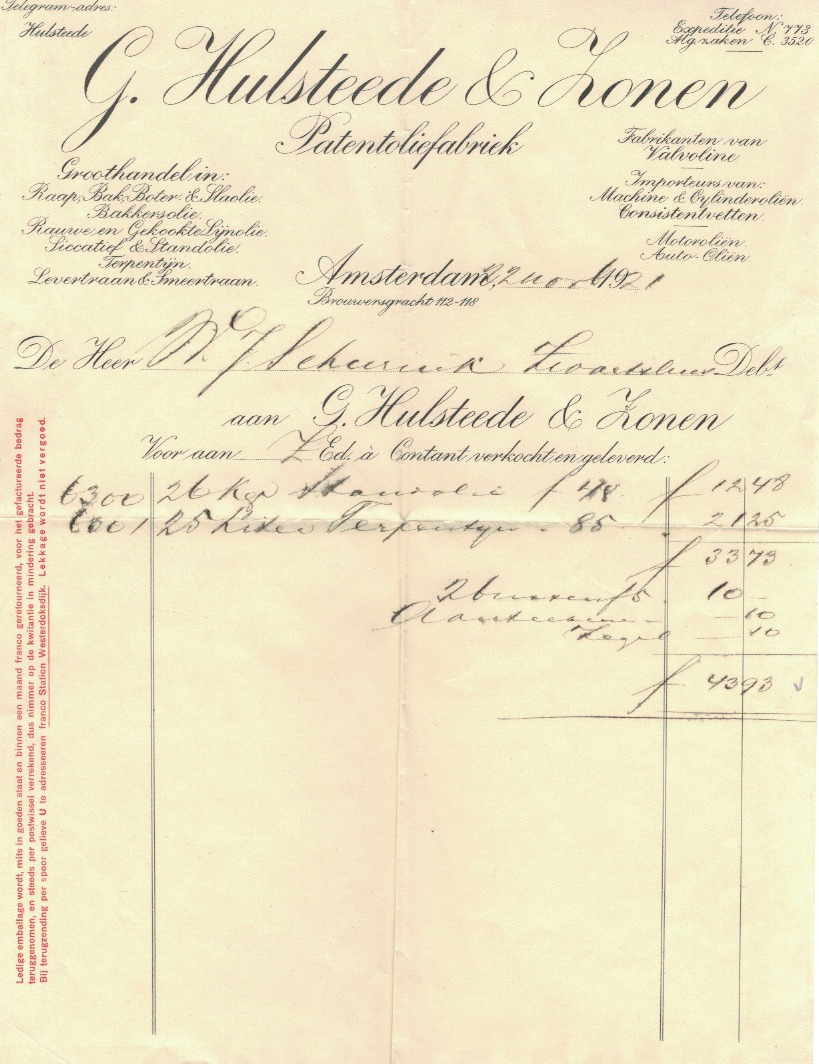 Telegram-adres:
Hulsteede
Telefoon:
Expeditie N. 773
Alg. zaken C. 3520
G. Hulsteede & Zonen
Patentoliefabriek
Groothandel in:
Raap, Bak, Boter- & Slaolie.
Bakkersolie.
Rauwe en Gekookte Lijnolie.
Siccatief & Standolie.
Terpentijn.
Levertraan & Smeertraan.
Fabrikanten van
Valvoline
Importeurs van:
Machine & Cylinderoliën
Consistentvetten.
Motoroliën
Auto-Oliën
Amsterdam, 22 nov 1921
Brouwersgracht 112-118
De Heer W. J. Schuurink Zwartsluis Debt
aan G. Hulsteede & Zonen
Voor aan Z Ed. à Contant verkocht en geleverd:
6300 26 Kgr Standolie f 48 f 12 48
6301 25 Liter Terpentijn - 85 21 25
f 33 73
2 bussen f 5 10 -
- 10
Zegel - 10
f 43 93
Ledige emballage wordt, mits in goeden staat en binnen een maand franco geretourneerd, voor het gefactureerde bedrag
teruggenomen, en steeds per postwissel verrekend, dus nimmer op de kwitantie in mindering gebracht.
Bij terugzending per spoor gelieve U te adresseeren franco Station Westerdoksdijk. Lekkage wordt niet vergoed.